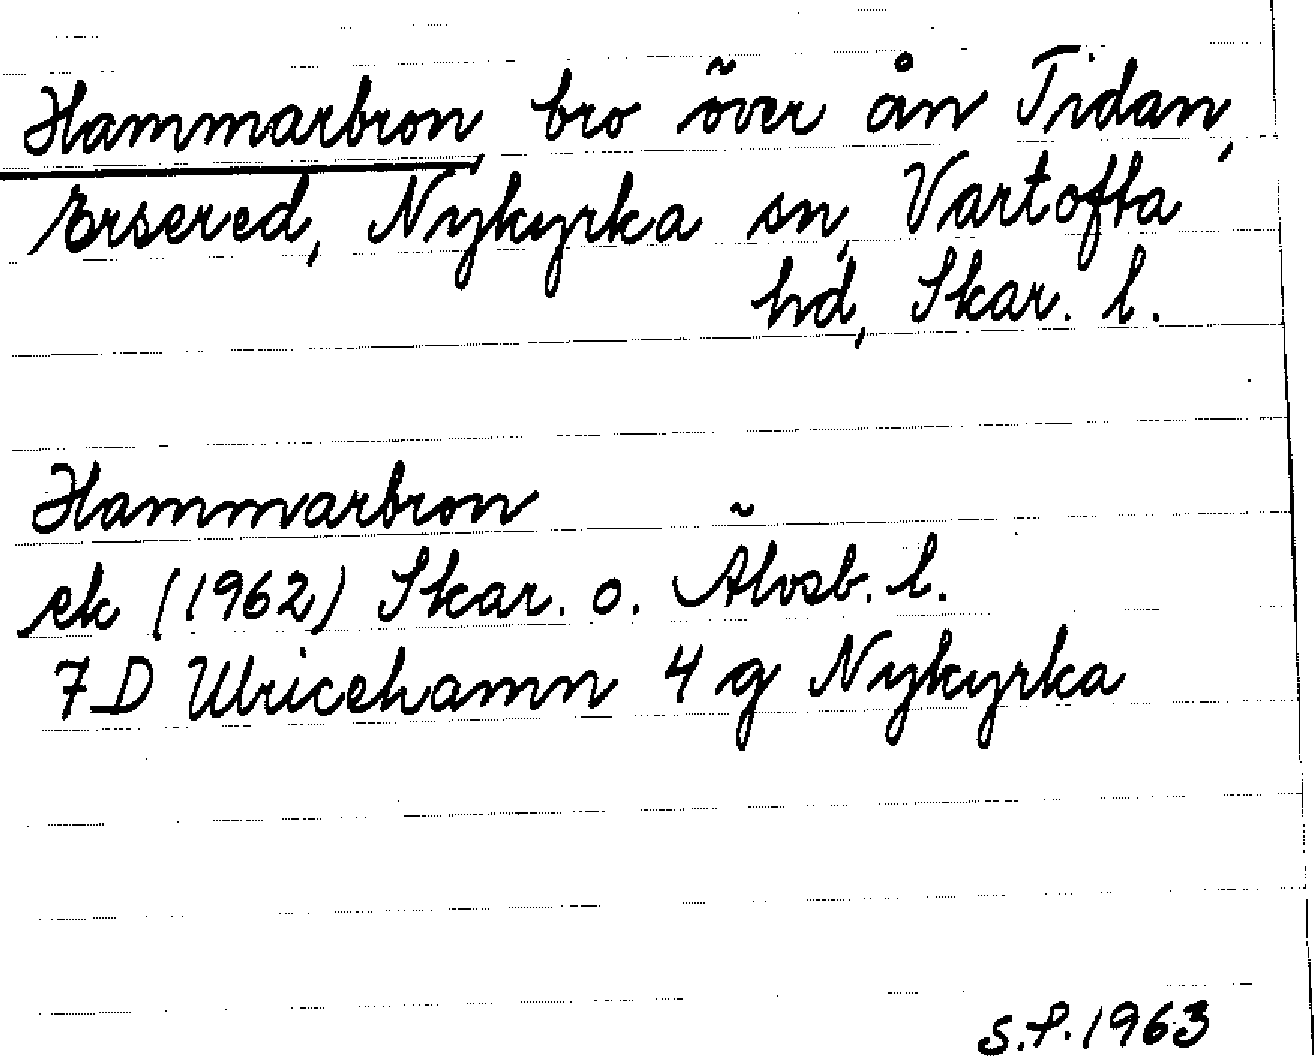 Hammarbron, bro över ån Tidan,
Ersered, Nykyrka sn, Vartofta
hd, Skar. l.
Hammarbron
ek (1962) Skar. o. Älvsb. l.
7 D Ulricehamn 4 g Nykyrka
S.P. 1963